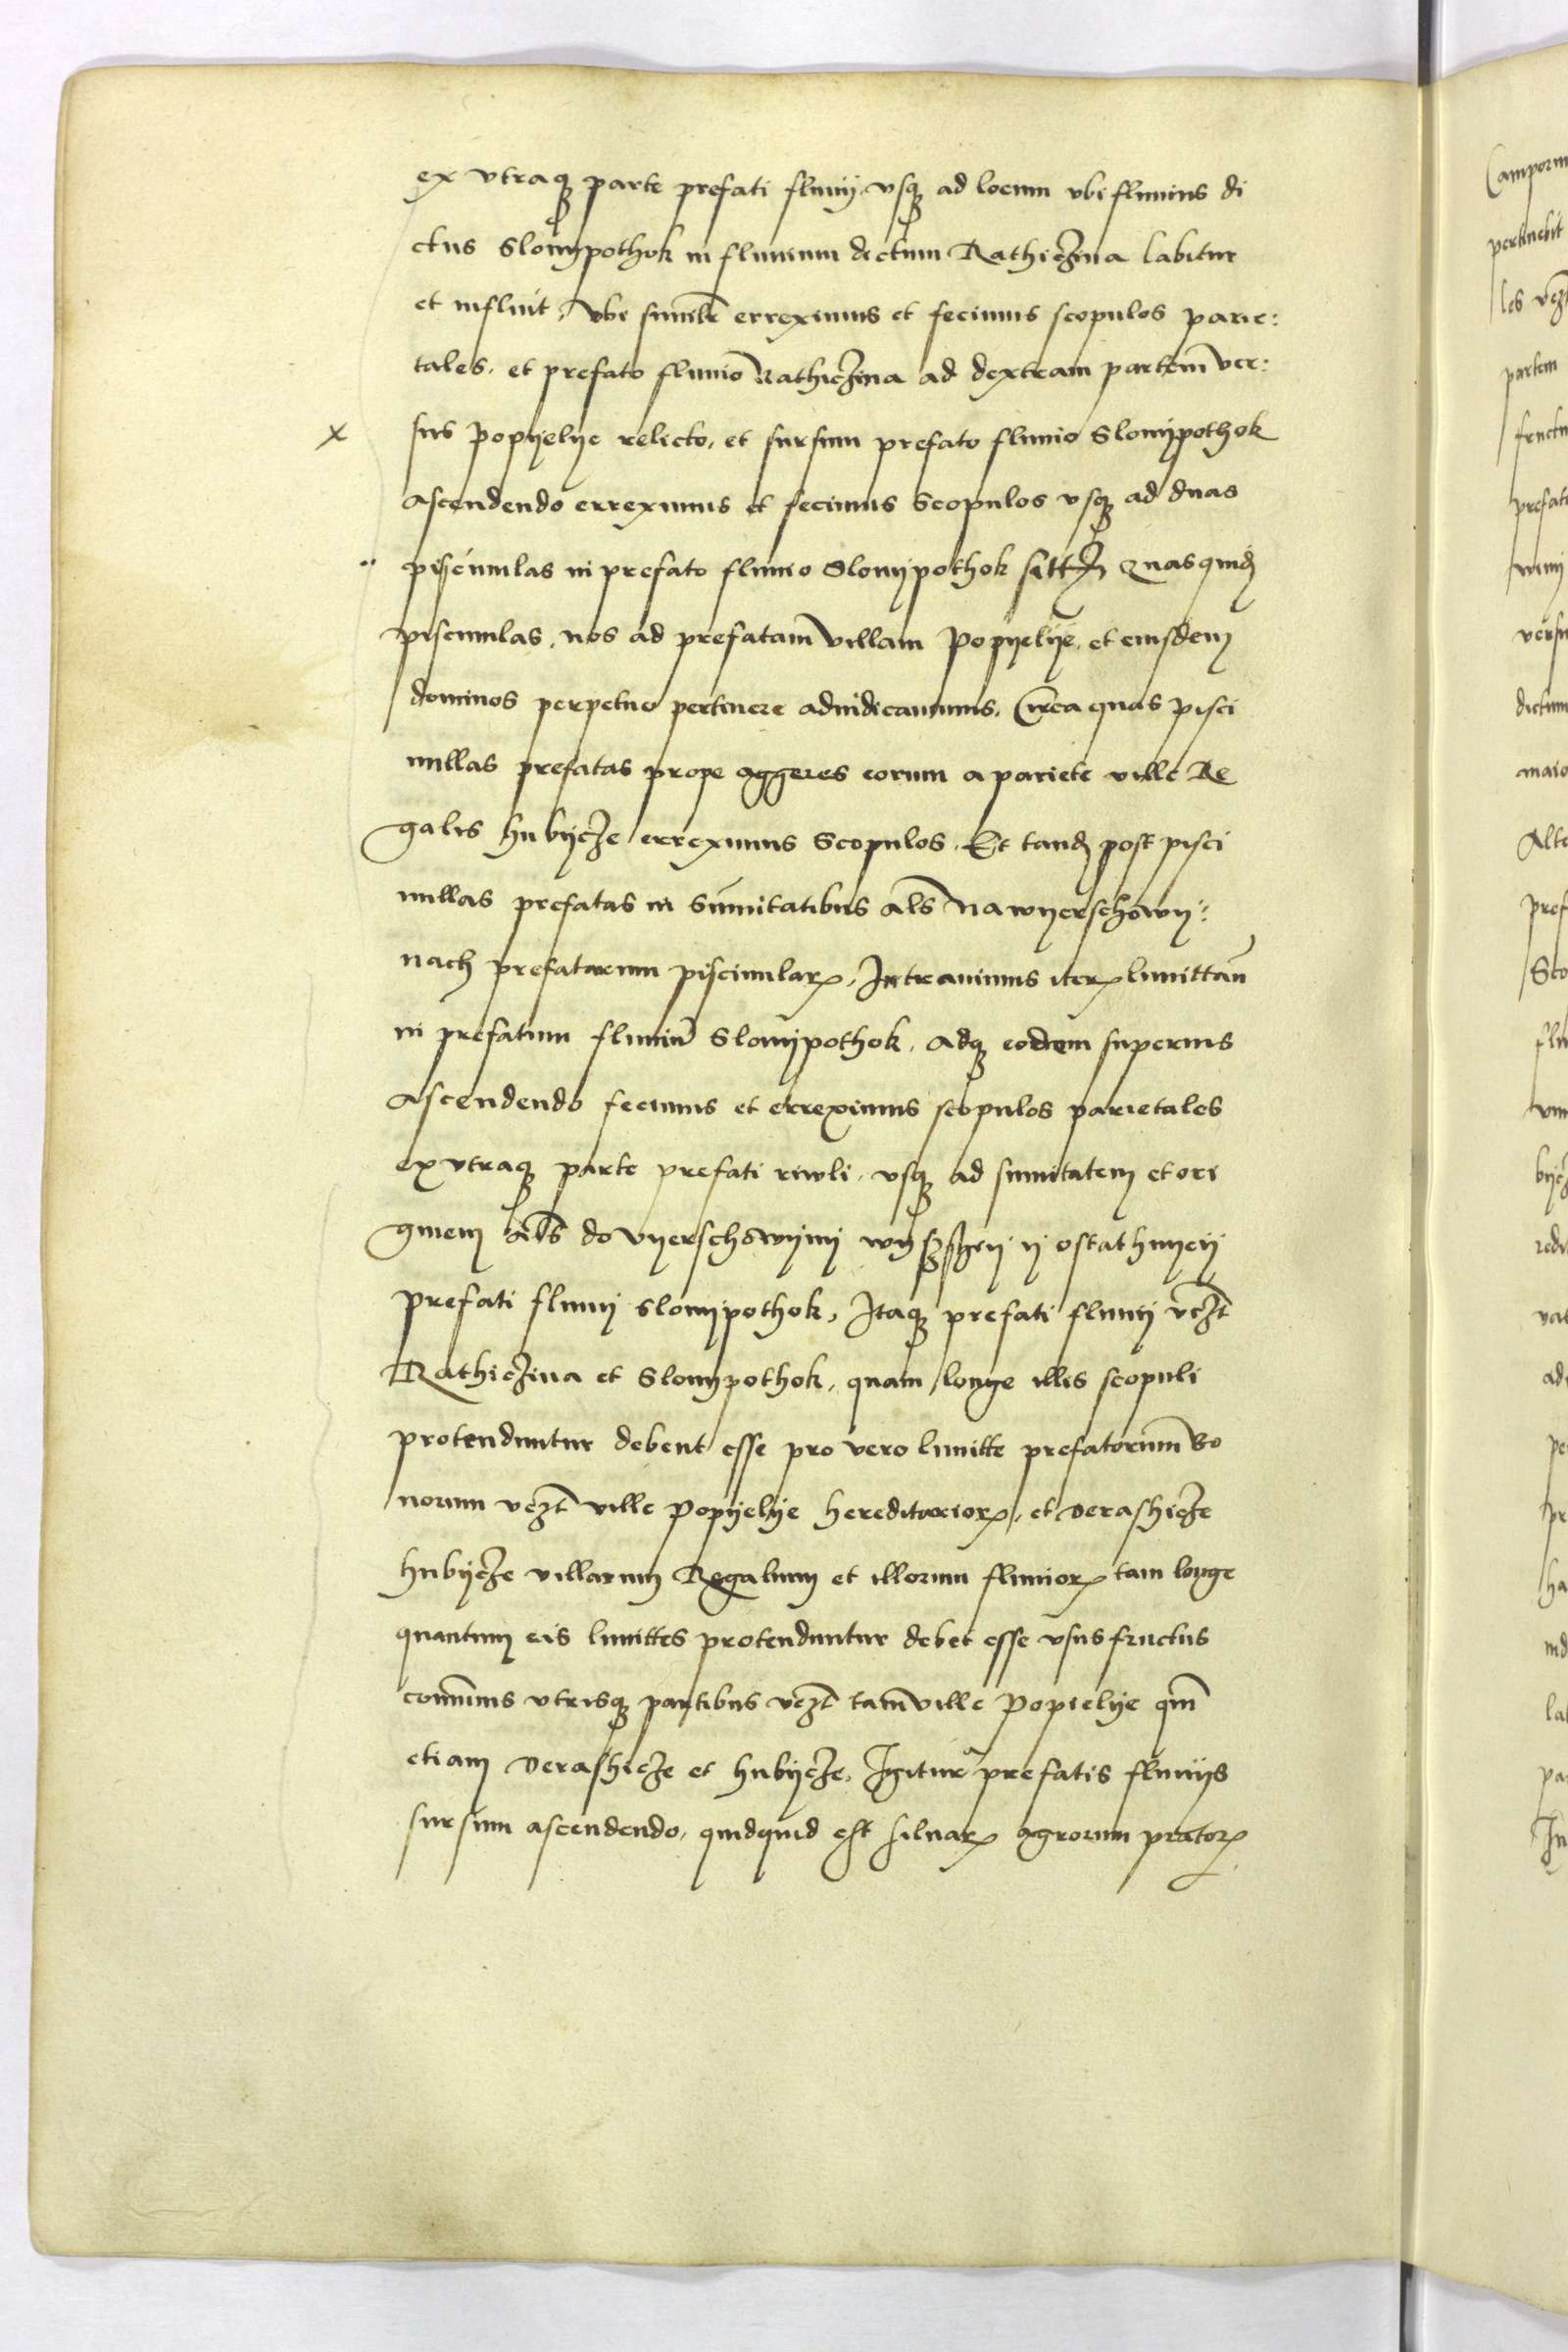 ex vtraq3 parte prefati fluuij vsq3 ad locum vbi fluuius di
ctus Slonijpothok in fluuium dictum Rathiczina labitur
et influit, vbi similr erreximus et fecimus scopulos parie:
tales, et prefato fluuio Rathiczina ad dextram partem ver:
sus Popijelije relicto, et sursum prefato fluuio Slonijpothok
ascendendo erreximus et fecimus Scopulos vsq3 ad duas
piscinulas in prefato fluuio Slonijpothok Quas quid
piscinulas, nos ad prefatam villam Popijelije, et eiusdem
dominos perpetuo pertinere adiudicauimus, Circa quas pisci
nullas prefatas prope aggeres eorum a pariete ville Re
galis hubijcze erreximus Scopulos. Et tand post pisci
nullas prefatas in Sumitatibus als na wijerschowij:
nach prefatarum piscinular, Intrauimus iter limittan
in prefatum fluuiu Slonijpothok, adq3 eodem superius
ascendendo fecimus et erreximus scopulos parietales
ex vtraq3 parte prefati riwli, vsq3 ad sumitatem et ori
ginem als do vijerschowijnij ij ostathnijeij
prefati fluuij Slonijpothok, Itaq3 prefati fluuij vczt
Rathiczina et Slonijpothok, quam longe illis scopuli
protenduntur debent esse pro vero limitte prefatorum bo
norum vczt ville Popijelije hereditarior, et Derashicze
hubijcze villarum Regalium et illorum fluuior tam longe
quantum eis limittes protenduntur debet esse vsusfructus
comunis vtrisq3 partibus vczt tam ville Popielije qm
etiam Derashicze et hubijcze, Igitur prefatis fluuijs
sursum ascendendo, quidquid est siluar agrorum prator